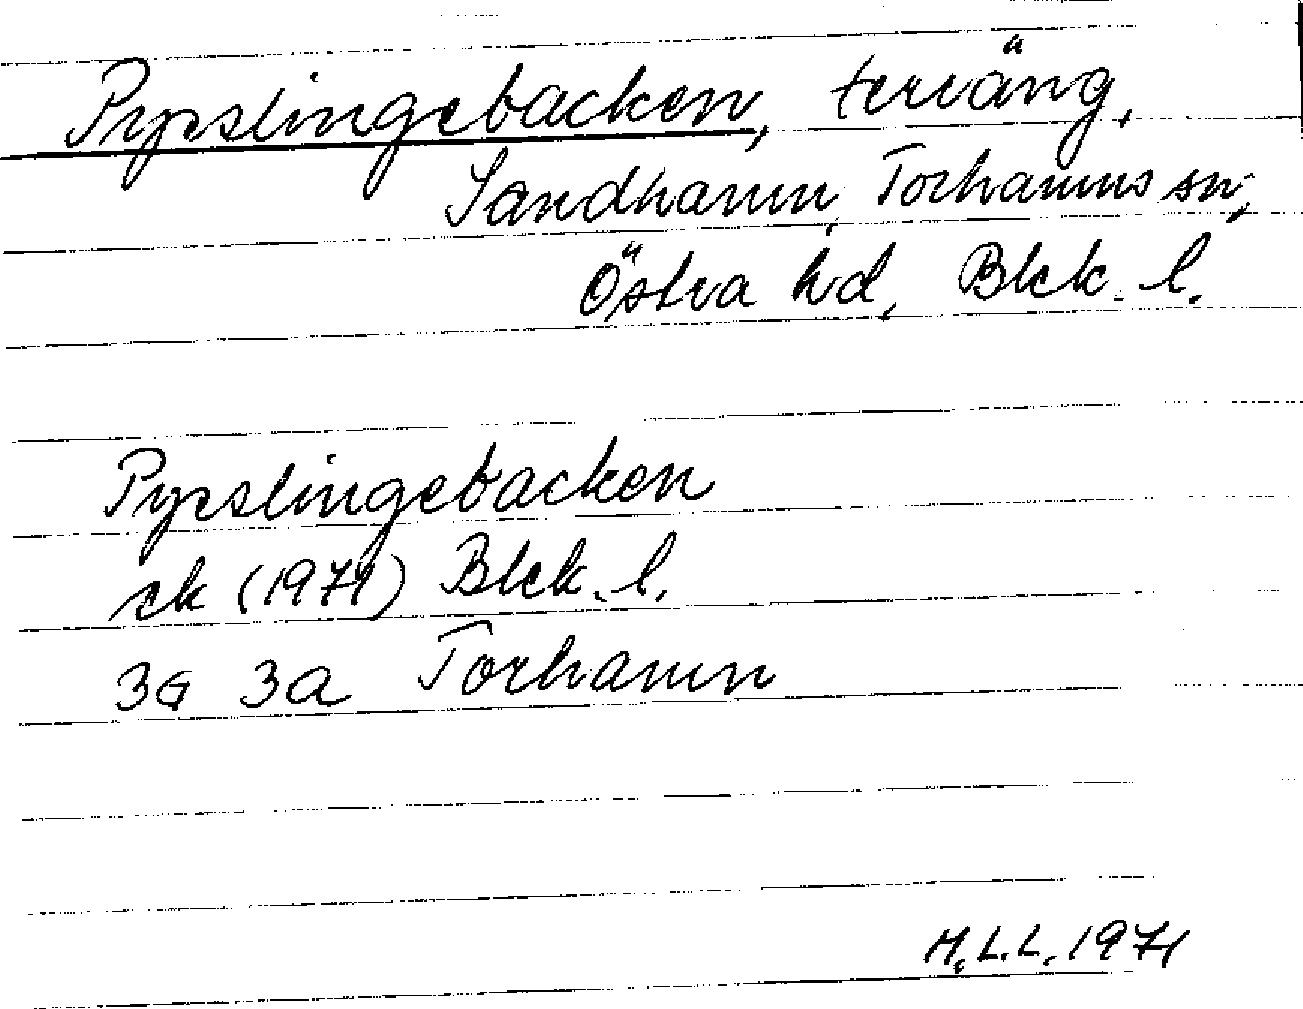 Pyrslingebacken, terräng,
Sandhamn, Torhamns sn,
Östra hd, Blek. l.
Pyrslingebacken
ek (1971) Blek. l.
3G 3a Torhamn
H.L.L. 1971